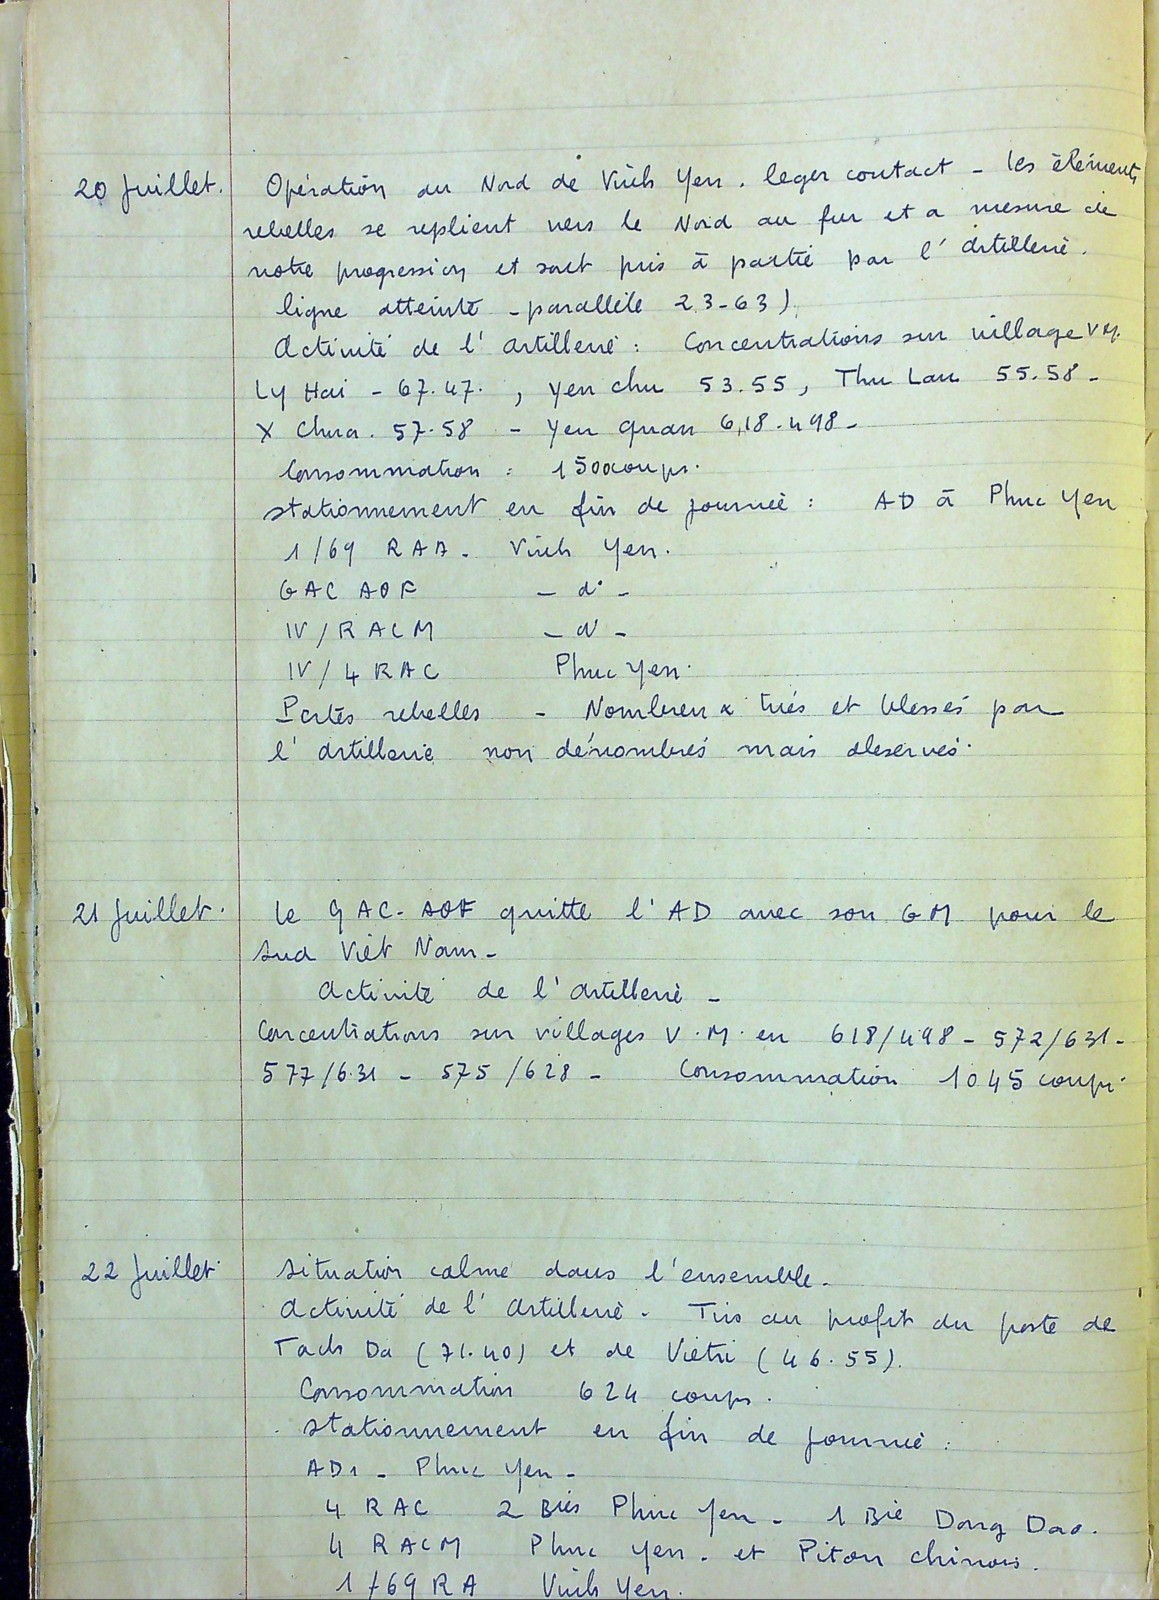 20 Juillet. Opération au Nord de Vinh Yen. leger contact - les éléments
rebelles se replient vers le Nord au fur et a mesure de
notre progression et sont pris à partie par l'artillerie.
ligne atteinte - parallèle 23-63)
Activité de l'artillerie : Concentrations sur village VM.
Ly Hai - 67.47. , Yen chu 53.55, Thu Lau 55.58 -
X Chua. 57.58 - Yen Quan 618.498 -
Consommation : 1500 coups.
Stationnement en fin de journée : AD à Phuc Yen
1/69 RAA. Vinh Yen.
GAC AOF - d° -
IV/RACM - d° -
IV/4 RAC Phuc Yen.
Pertes rebelles - Nombreux tués et blessés par
l'artillerie non dénombrés mais observés.
21 Juillet. Le GAC-AOF quitte l'AD avec son GM pour le
Sud Viêt Nam -
Activité de l'artillerie -
Concentrations sur villages V.M. en 618/498 - 572/631 -
577/631 - 575/628 - Consommation 1045 coups.
22 Juillet. Situation calme dans l'ensemble.
Activité de l'artillerie - Tirs au profit du poste de
Tach Da (71.40) et de Vietri (46.55).
Consommation 624 coups.
Stationnement en fin de journée :
AD1 - Phuc Yen -
4 RAC 2 Bies Phuc Yen - 1 Bie Dong Dao.
4 RACM Phuc Yen. et Piton chinois.
1/69 RA Vinh Yen.